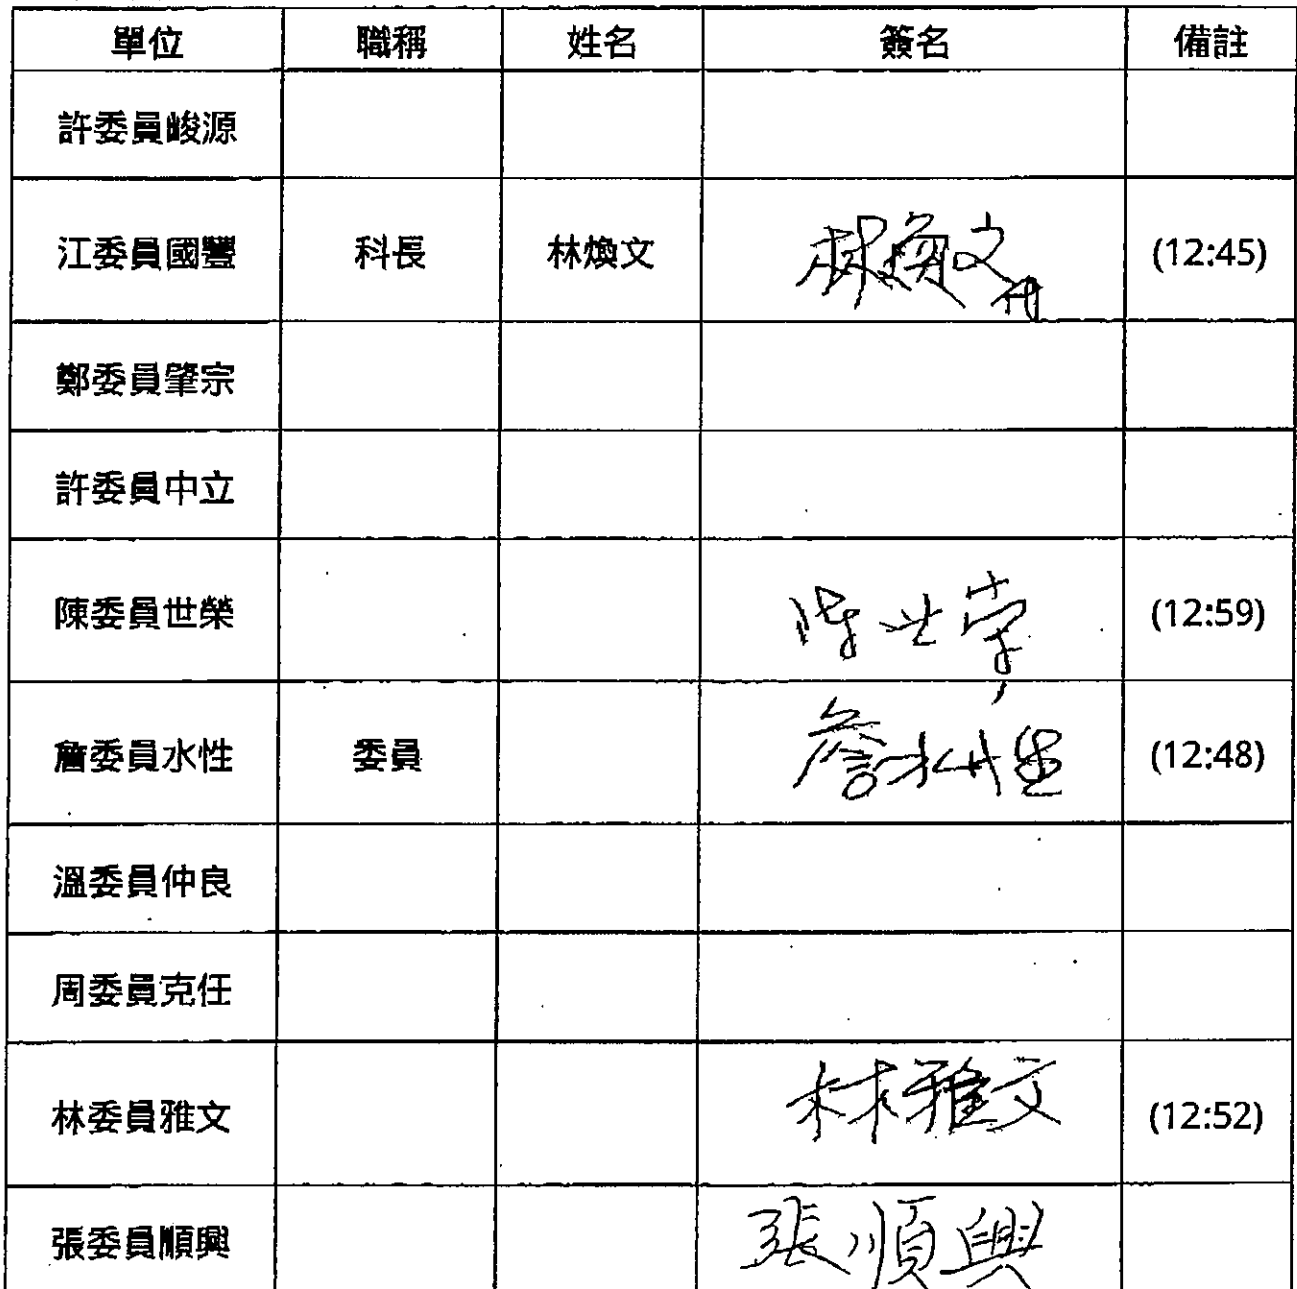 單位 職稱 姓名 簽名 備註
許委員峻源
江委員國豐 科長 林煥文 林煥文 (12:45)
鄭委員肇宗
許委員中立
陳委員世榮 陳世榮 (12:59)
詹委員水性 委員 詹水性 (12:48)
溫委員仲良
周委員克任
林委員雅文 林雅文 (12:52)
張委員順興 張順興